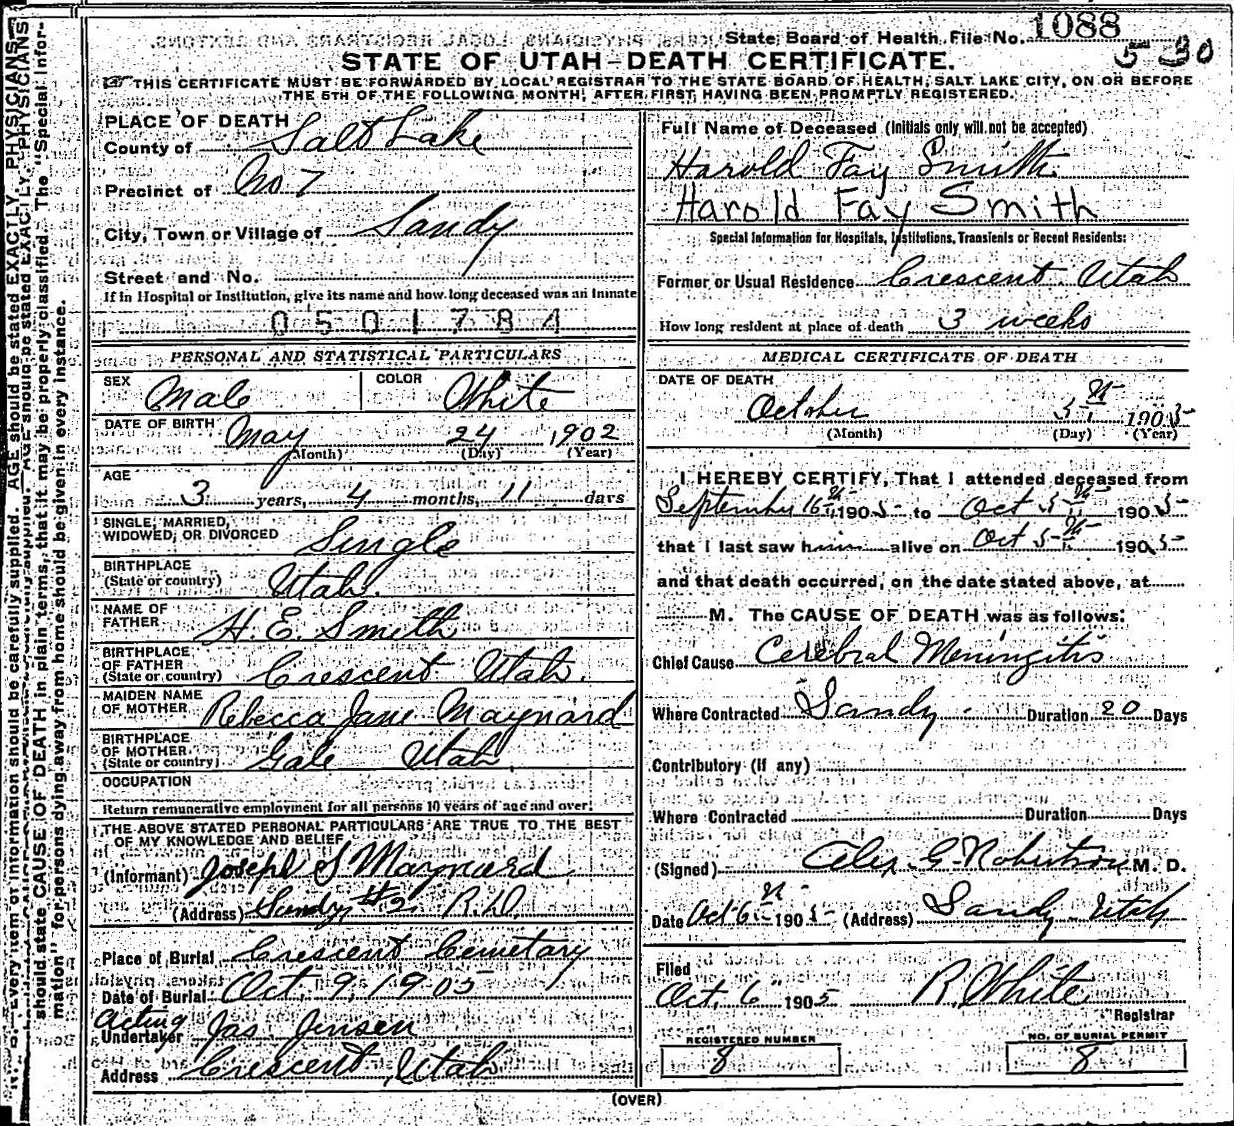 State Board of Health File No. 1088
5 30
STATE OF UTAH-DEATH CERTIFICATE.
THIS CERTIFICATE MUST BE FORWARDED BY LOCAL REGISTRAR TO THE STATE BOARD OF HEALTH, SALT LAKE CITY, ON OR BEFORE
THE 5TH OF THE FOLLOWING MONTH, AFTER FIRST HAVING BEEN PROMPTLY REGISTERED.
PLACE OF DEATH
County of Salt Lake
Precinct of No 7
City, Town or Village of Sandy
Street and No.
If in Hospital or Institution, give its name and how long deceased was an inmate
0501784
PERSONAL AND STATISTICAL PARTICULARS
SEX Male COLOR White
DATE OF BIRTH May 24 1902
(Month) (Day) (Year)
AGE
3 years, 4 months, 11 days
SINGLE, MARRIED,
WIDOWED, OR DIVORCED Single
BIRTHPLACE
(State or country) Utah.
NAME OF
FATHER H. E. Smith
BIRTHPLACE
OF FATHER
(State or country) Crescent Utah.
MAIDEN NAME
OF MOTHER Rebecca Jane Maynard
BIRTHPLACE
OF MOTHER
(State or country) Gale Utah.
OCCUPATION
Return remunerative employment for all persons 10 years of age and over.
THE ABOVE STATED PERSONAL PARTICULARS ARE TRUE TO THE BEST
OF MY KNOWLEDGE AND BELIEF
(Informant) Joseph S Maynard
(Address) Sandy #2 R.D.
Place of Burial Crescent Cemetary
Date of Burial Oct. 9, 1905
Acting
Undertaker Jas. Jensen
Address Crescent, Utah
Full Name of Deceased (Initials only will not be accepted)
Harold Fay Smith.
Harold Fay Smith
Special Information for Hospitals, Institutions, Transients or Recent Residents:
Former or Usual Residence Crescent Utah
How long resident at place of death 3 weeks
MEDICAL CERTIFICATE OF DEATH
DATE OF DEATH
October 5th 1905
(Month) (Day) (Year)
I HEREBY CERTIFY, That I attended deceased from
September 16th 1905 to Oct 5th 1905
that I last saw him alive on Oct 5th 1905
and that death occurred, on the date stated above, at
M. The CAUSE OF DEATH was as follows:
Chief Cause Cerebral Meningitis
Where Contracted Sandy. Duration 20 Days
Contributory (if any)
Where Contracted Duration Days
(Signed) Alex G. Robertson M. D.
Date Oct 6th 1905 (Address) Sandy Utah
Filed
Oct. 6 1905 R. White
Registrar
REGISTERED NUMBER
8
NO. OF BURIAL PERMIT
8
(OVER)
Every item of information should be carefully supplied. AGE should be stated EXACTLY. PHYSICIANS
should state CAUSE OF DEATH in plain terms, that it may be properly classified. The "Special Infor-
mation" for persons dying away from home should be given in every instance.